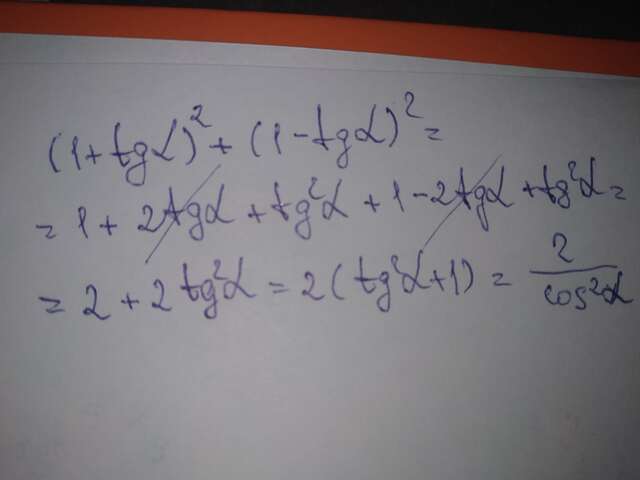 (1+tgα)²+(1-tgα)²=
=1+2tgα+tg²α+1-2tgα+tg²α=
=2+2tg²α=2(tg²α+1)=2/cos²α